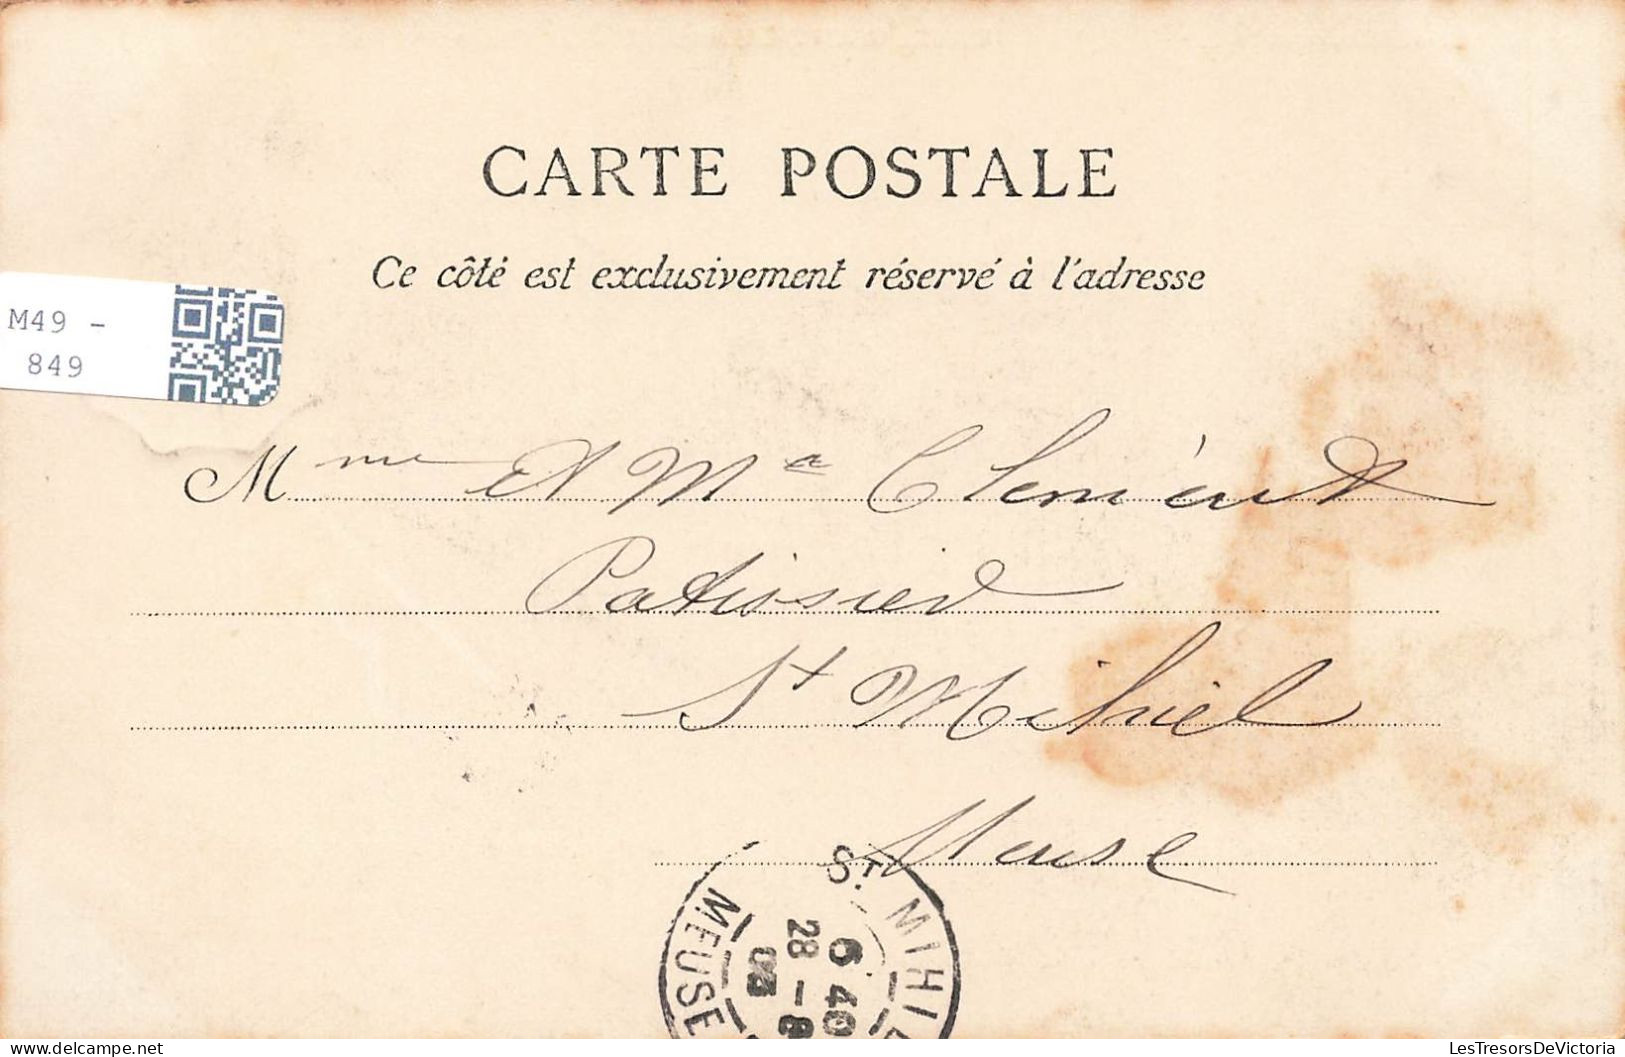 CARTE POSTALE
Ce côté est exclusivement réservé à l'adresse
M49 -
849
Mme et Mr Clément
Patissier
St Mihiel
Meuse
ST. MIHIEL
6 40
28 - 8
03
MEUSE
LesTresorsDeVictoria